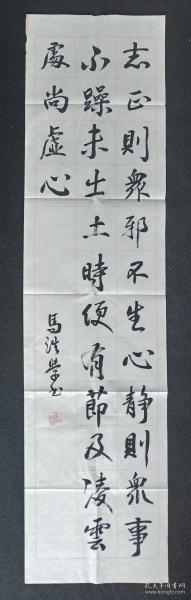 志正則衆邪不生心靜則衆事
不躁未出土時便有節及凌雲
處尚虛心
馬洪學書